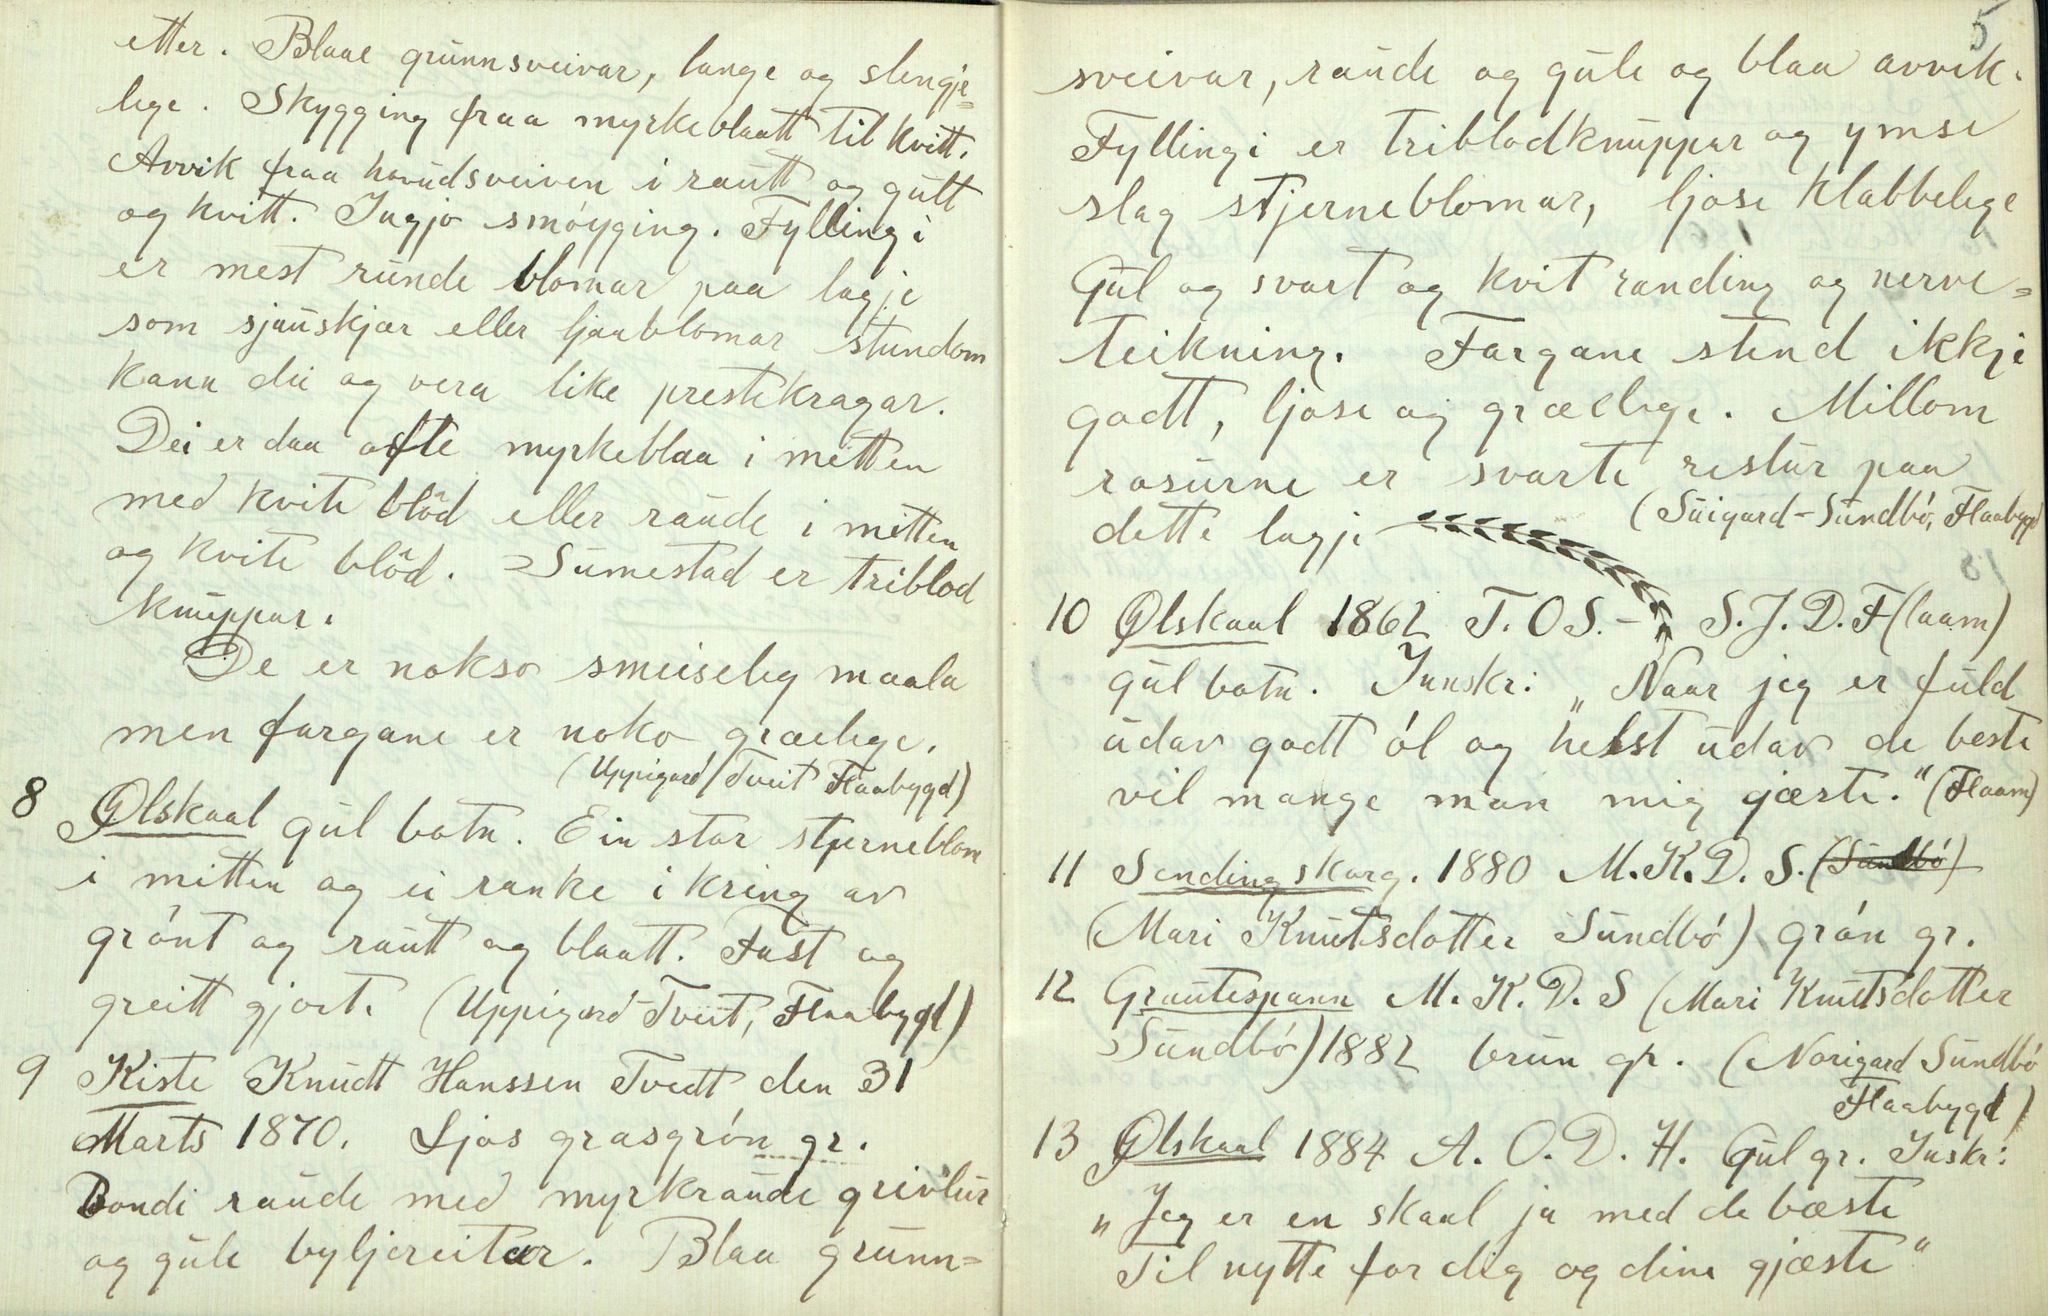 etter. Blaae grunnsveivar, lange og slengje-
lege. Skygging fraa myrkeblaatt til kvitt.
Avvik fraa hovudsveiven i rautt og gult
og kvitt. Ingjo smøyging. Fyllingi
er mest runde blomar paa lagje
som sjauskjær eller ljaablomar stundom
kann dei og vera like prestekragar.
Dei er daa ofte myrkeblaa i mitten
med kvite blód eller raude i mitten
og kvite blód. Sumestad er triblod
knuppar.
De er nokso smeiseleg maala
men fargane er noko grælege.
(Uppigard Tveit Flaabygd)
8 Ølskaal gul botn. Ein stor stjerneblom
i mitten og ei ranke ikring av
grónt og rautt og blaatt. Fast og
greitt gjort. (Uppigard-Tveit, Flaabygd)
9 Kiste Knudt Hanssen Tvedt den 31
Marts 1870. Ljos grasgrón gr.
Bondi raude med myrkraude grivlur
og gule byljereitar. Blaa grunn-
5
sveivar, raude og gule og blaa avvik.
Fyllingi er triblodknuppar og ymse
slag stjerneblomar, ljose klabbelege
Gul og svart og kvit randing og nerve-
teikning. Fargane stend ikkje
godt, ljose og grælege. Millom
rosurne er svarte restur paa
dette lagje (Suigard-Sundbó, Flaabygd
10 Ølskaal 1862 T. O S. - S. J. D. F(laam)
gul botn. Innskr: „Naar jeg er fuld
udav godt ól og helst udav de beste
vil mange man mig gjæste." (Flaam)
11 Sendingskorg. 1880 M. K. D. S. (Sundbó)
(Mari Knutsdotter Sundbó) grón gr.
12 Grautespann M. K. D. S (Mari Knutsdotter
Sundbó) 1882 brun gr. (Norigard Sundbó
Flaabygd)
13 Ølskaal 1884 A. O. D. H. Gul gr. Inskr:
„Jeg er en skaal ja med de bæste
Til nytte for dig og dine gjæste"